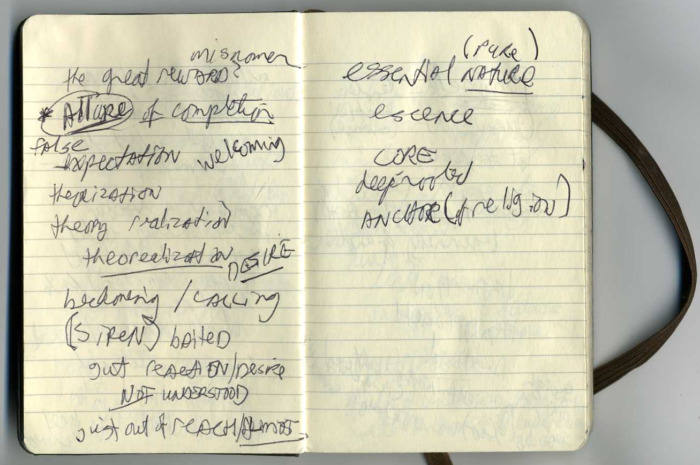 misnomer
the great reward?
* Allure of completion
false
expectation welcoming
theorization
theory realization
theorealization
DESIRE
beckoning / CALLING
(SIREN) baited
gut reaction/Desire
NOT UNDERSTOOD
just out of REACH/ALMOST
(pure)
essential NATURE
escence
CORE
deep rooted
ANCHOR (of religion)